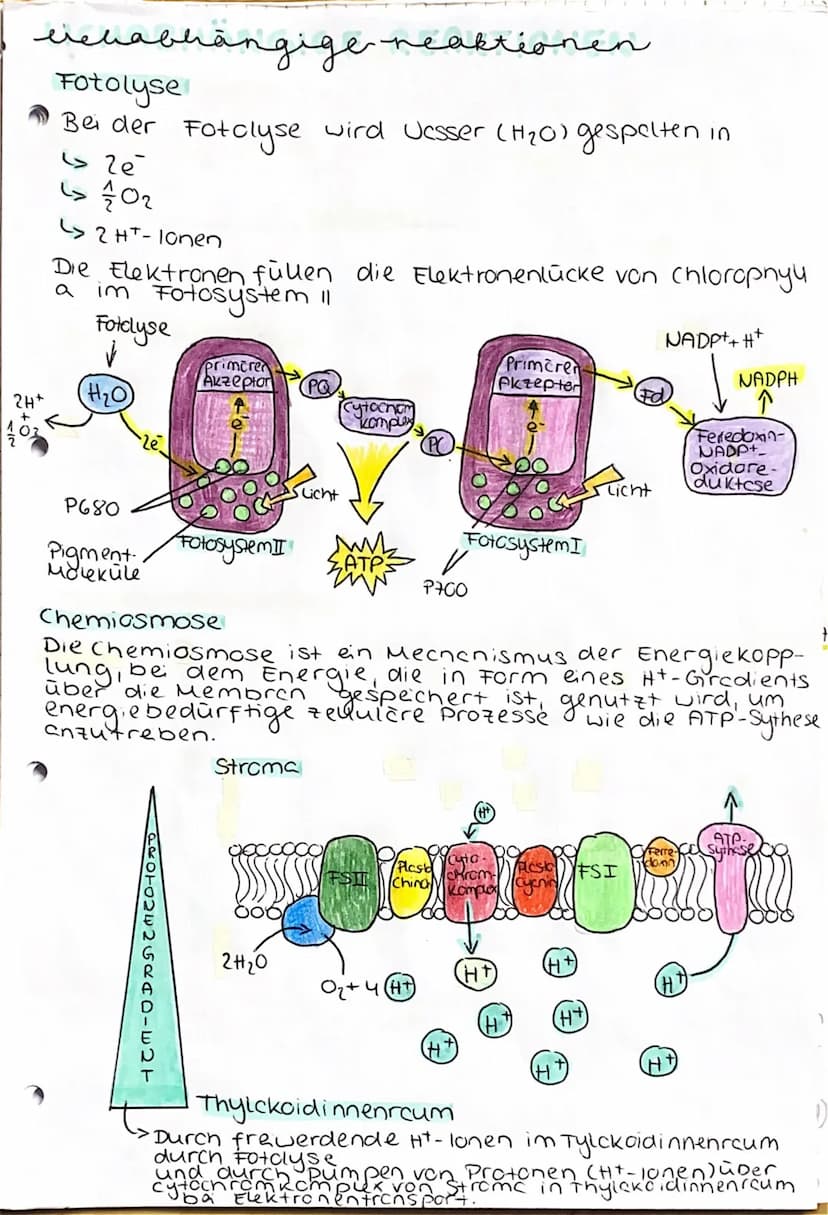 lichtabhängige reaktionen
Fotolyse
Bei der Fotolyse wird Wasser (H₂O) gespalten in
↳ 2e⁻
↳ ½O₂
↳ 2 H⁺-Ionen
Die Elektronen füllen die Elektronenlücke von Chlorophyll
a im Fotosystem II
Fotolyse
H₂O
2H⁺
+
½O₂
2e⁻
Primärer
Akzeptor
e⁻
P680
Pigment-
Moleküle
Licht
Fotosystem II
PQ
Cytochrom
komplex
ATP
PC
Primärer
Akzeptor
e⁻
Licht
Fotosystem I
P700
Fd
NADP⁺+H⁺
NADPH
Ferredoxin-
NADP⁺-
Oxidore-
duktase
Chemiosmose
Die Chemiosmose ist ein Mechanismus der Energiekopp-
lung, bei dem Energie, die in Form eines H⁺-Gradients
über die Membran gespechert ist, genutzt wird, um
energiebedürftige zelluläre Prozesse wie die ATP-Sythese
anzutreben.
Stroma
PROTONENGRADIENT
H⁺
FSII
Plasto
Chinon
Cyto-
chrom-
komplex
Plasto
Cyanin
FSI
Ferre-
doxin
ATP-
Sythese
2H₂O
O₂+4 H⁺
H⁺
H⁺
H⁺
H⁺
H⁺
H⁺
H⁺
H⁺
Thylakoidinnenraum
Durch freiwerdende H⁺-Ionen im Tylakoidinnenraum
durch Fotolyse
und durch Pumpen von Protonen (H⁺-Ionen) über
cytochromkomplex von Stroma in Thylakoidinnenraum
bei Elektronentransport.